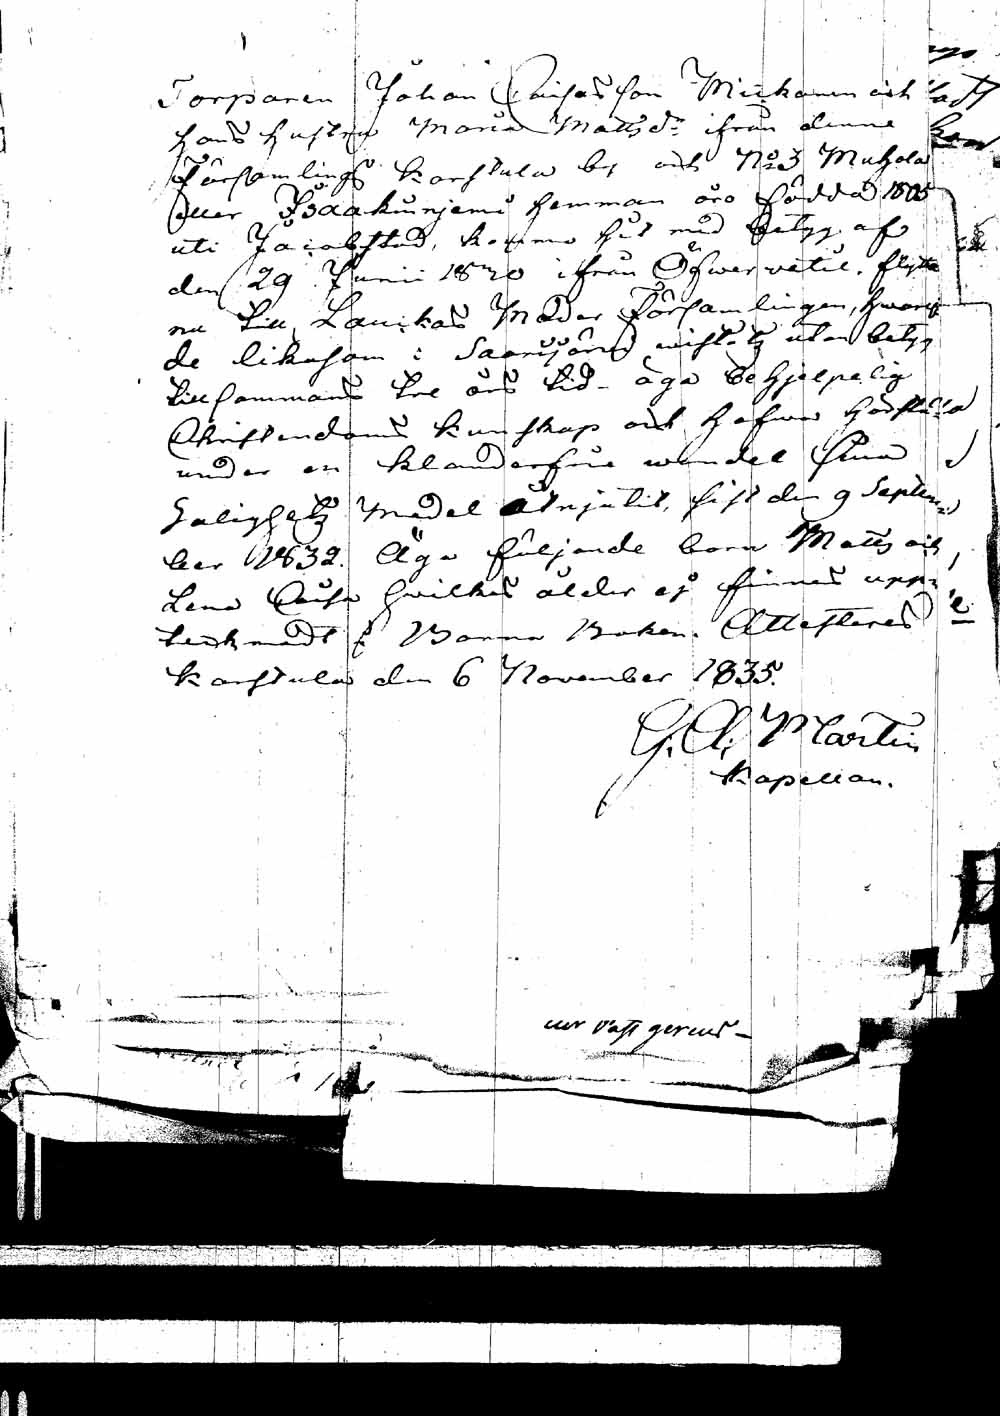 Torparen Johan Caisas son Miikanen och
hans hustru Maria Matts dr ifrån denne
Församlings Karstula by och No 3 Muhola
eller Isaakinnjemi hemman äro födda 1805
uti Jacobstad, komne hit med betyg af
den 29 Junii 1820 ifrån Öfwervetil. flytta
nu till Laukas Moder Församlingen, hwarest
de likasom i Saarijärvi wistats utan betyg
tillsammans tre års tid - äga behjelpelig
Christendoms kunskap och hafwa
under en klanderfrie wandel sina
Salighets medel åtnjutit, sist den 9 Septem
ber 1832. Äga följande barn Matts och
Lena Caisa hvilkas ålder ej finnes upp-
tecknadt i Barna Boken. Attesteras
Karstula den 6 November 1835.
G. A. Martin
Kapellan.